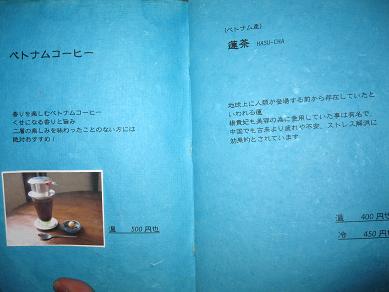 ベトナムコーヒー
香りを楽しむベトナムコーヒー
くせになる香りと旨み
二層の楽しみを味わったことのない方には
絶対おすすめ！
温 500円也
(ベトナム産)
蓮茶 HASU-CHA
地球上に人類が登場する前から存在していたと
いわれる蓮
楊貴妃も美容の為に愛用していた事は有名で、
中国でも古来より疲れや不安、ストレス解消に
効果的とされています
温 400円也
冷 450円也